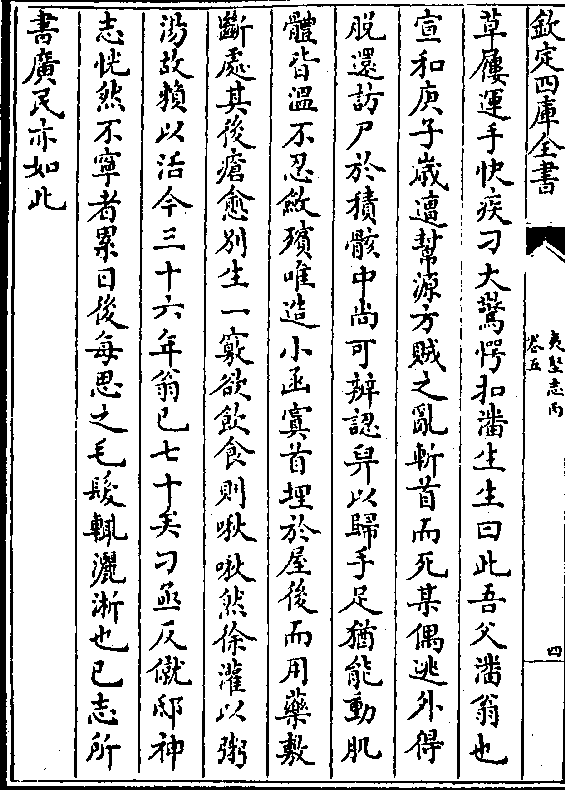 欽定四庫全書
夷堅志丙
卷五
四
草屨運手快疾刁大驚愕扣潘生生曰此吾父潘翁也
宣和庚子嵗遭幫源方賊之亂斬首而死某偶逃外得
脱還訪尸於積骸中尚可辨認舁以歸手足猶能動肌
體皆溫不忍斂殯唯造小函寘首埋於屋後而用藥敷
斷處其後瘡愈别生一竅欲飲食則啾啾然徐灌以粥
湯故賴以活今三十六年翁已七十矣刁亟反僦邸神
志恍然不寧者累日後每思之毛髮輒灑淅也已志所
書廣民亦如此